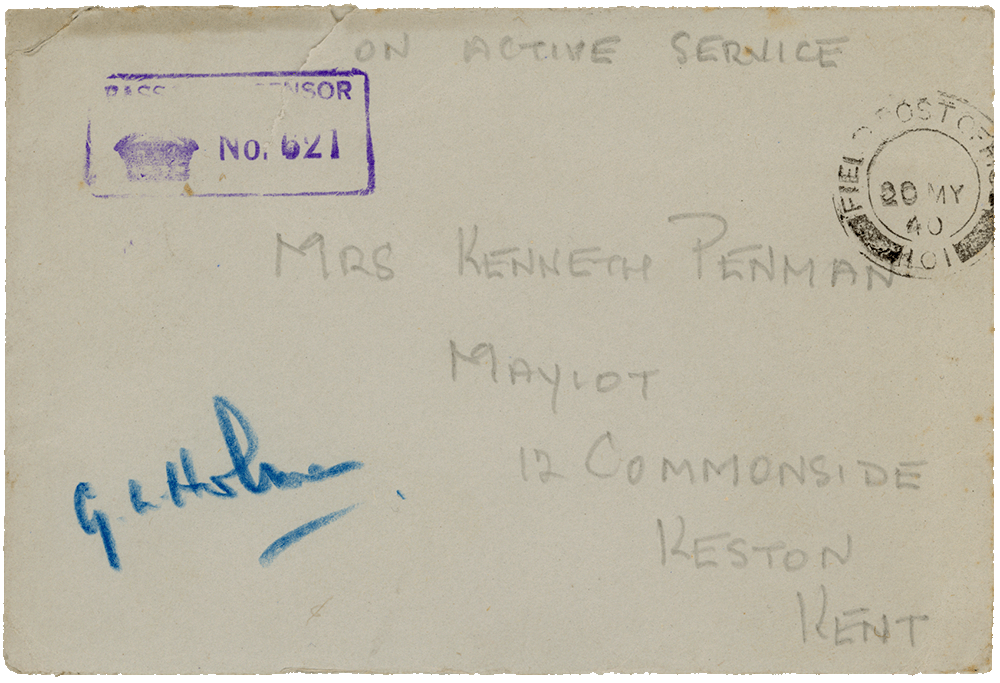 ON ACTIVE SERVICE
PASSED CENSOR
No. 621
FIELD POST OFFICE
20 MY
40
MRS KENNETH PENMAN
MAYIOT
12 COMMONSIDE
KESTON
KENT